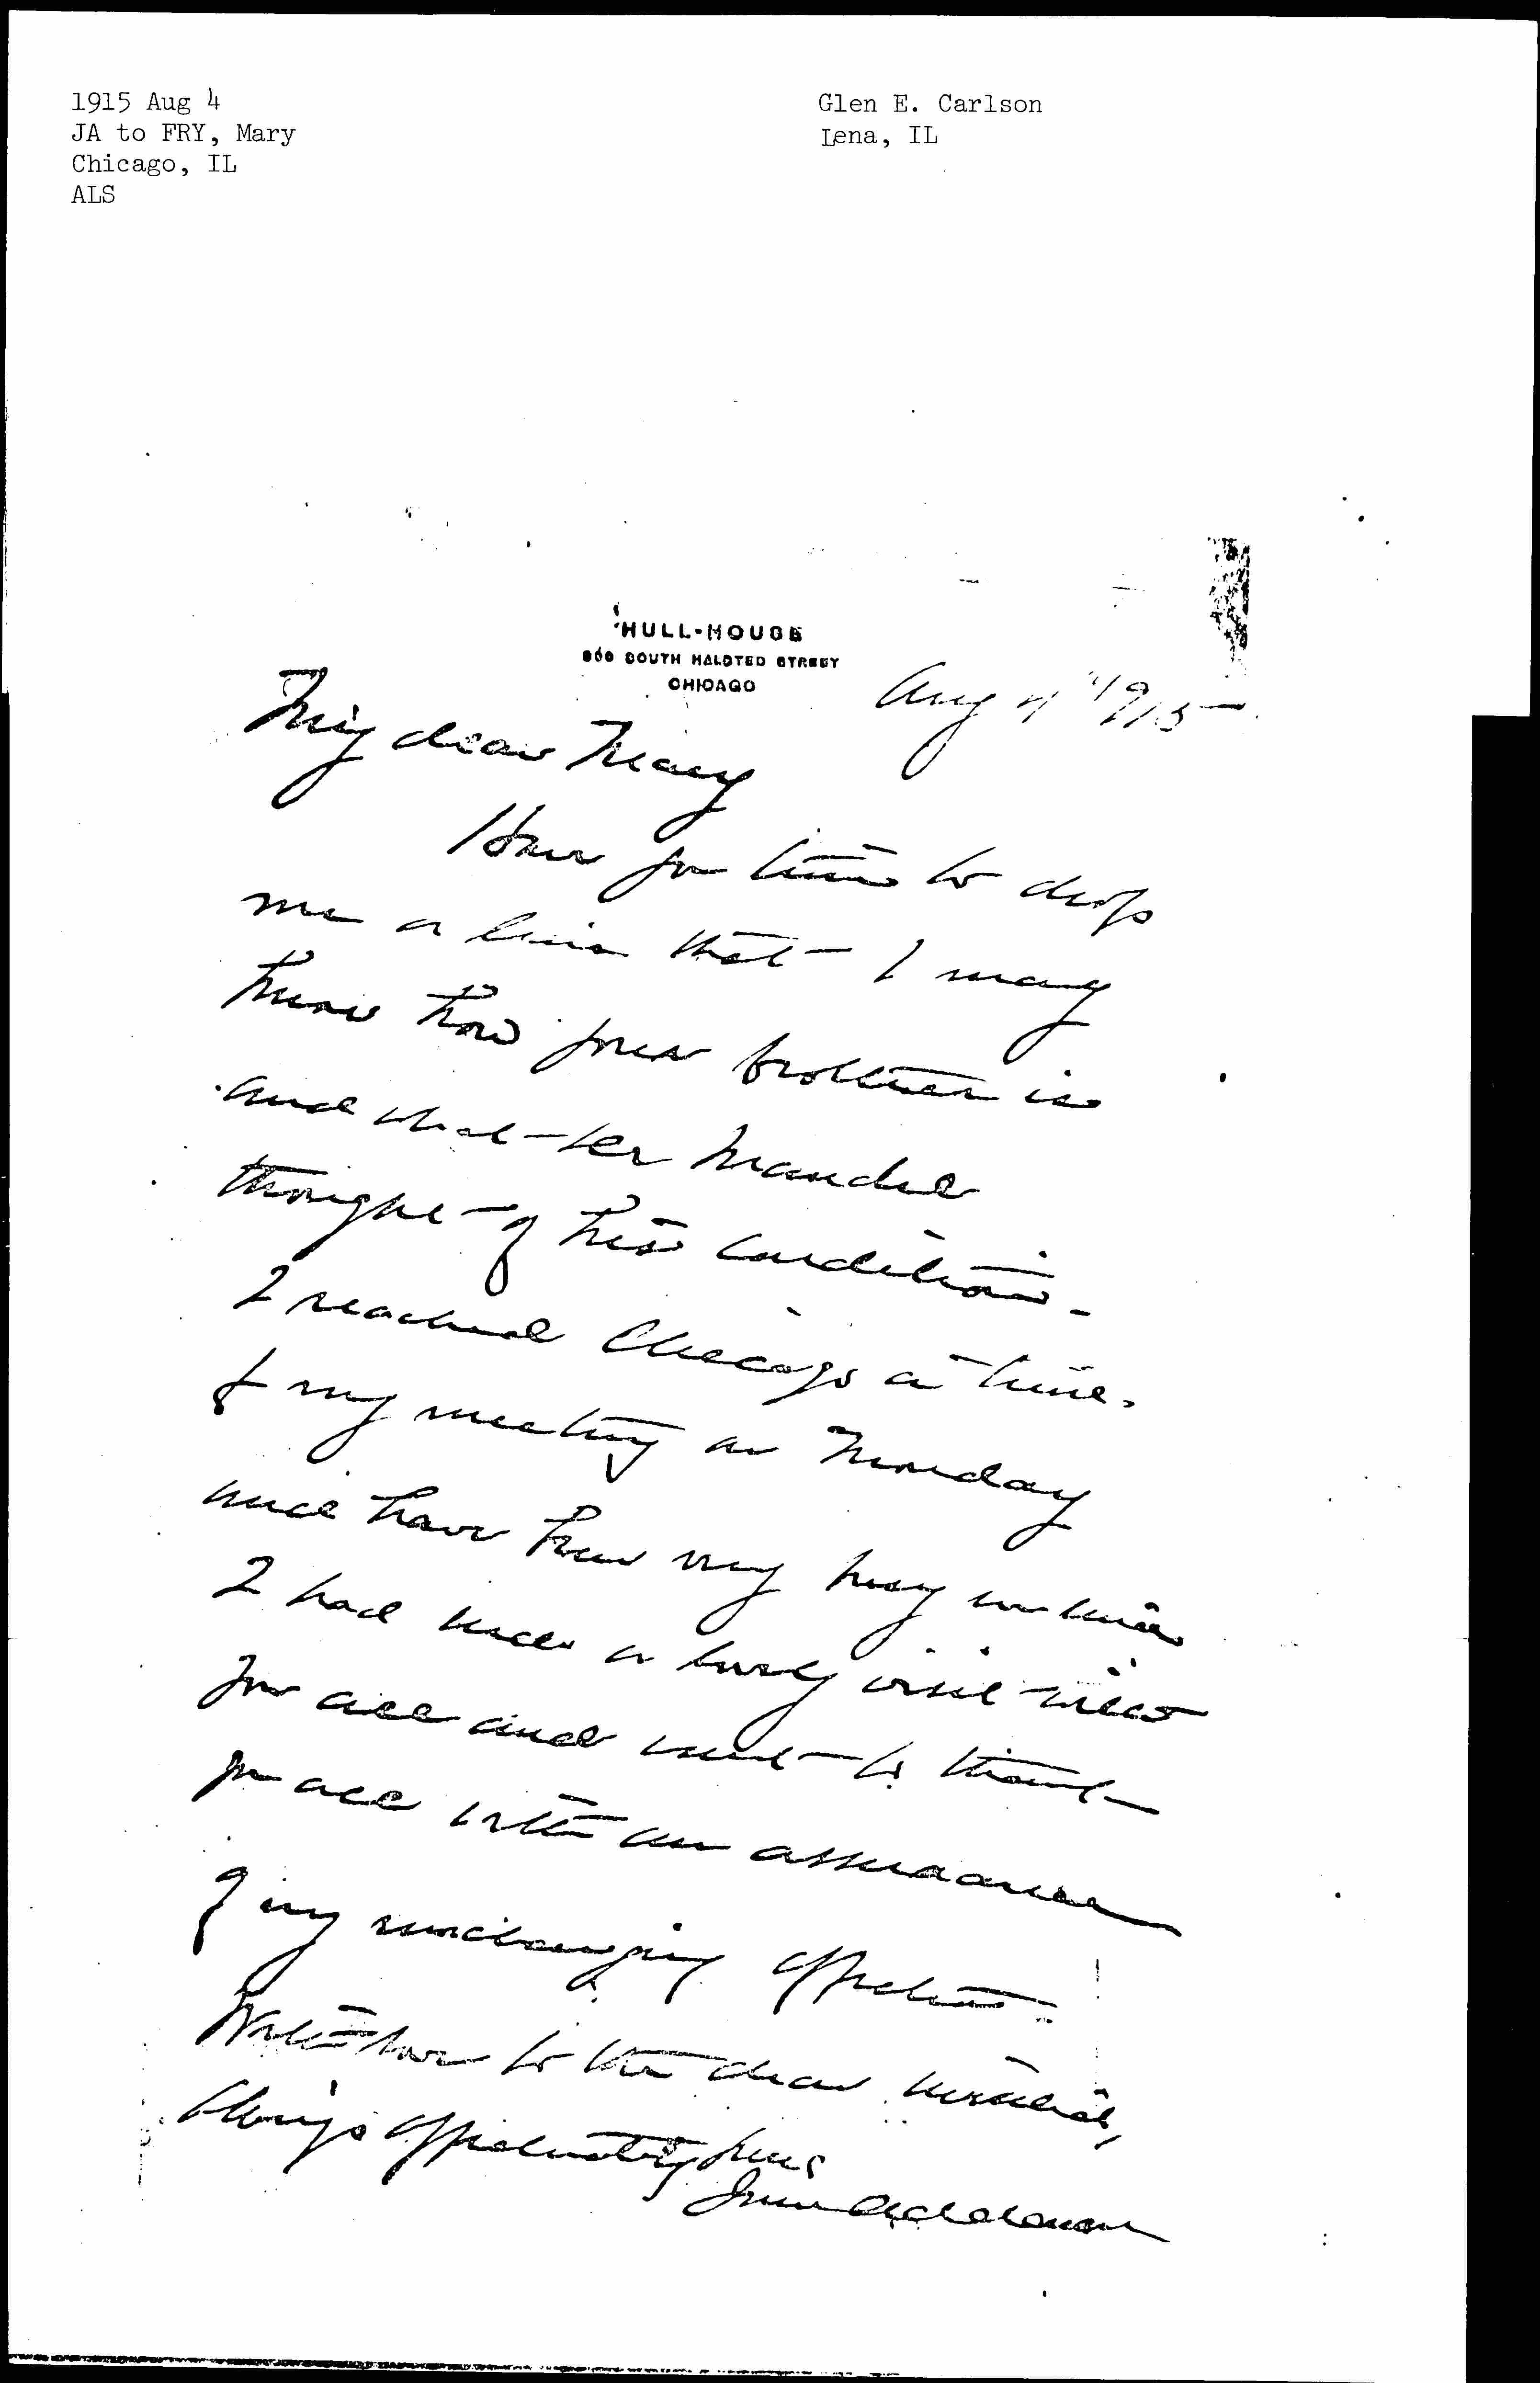 1915 Aug 4
JA to FRY, Mary
Chicago, IL
ALS
Glen E. Carlson
Lena, IL
HULL-HOUSE
800 SOUTH HALSTED STREET
CHICAGO
Aug 4" 1915
My dear Mary
Have you time to drop
me a line that I may
know how your brother is
and what
thought of his condition -
I reached Chicago in time
for my meeting on Monday
and have been very busy
I had such a lovely visit with
you all and want to thank
you all with an assurance
of my unchanging affection.
With love to the dear
Always affectionately yours
Jane Addams